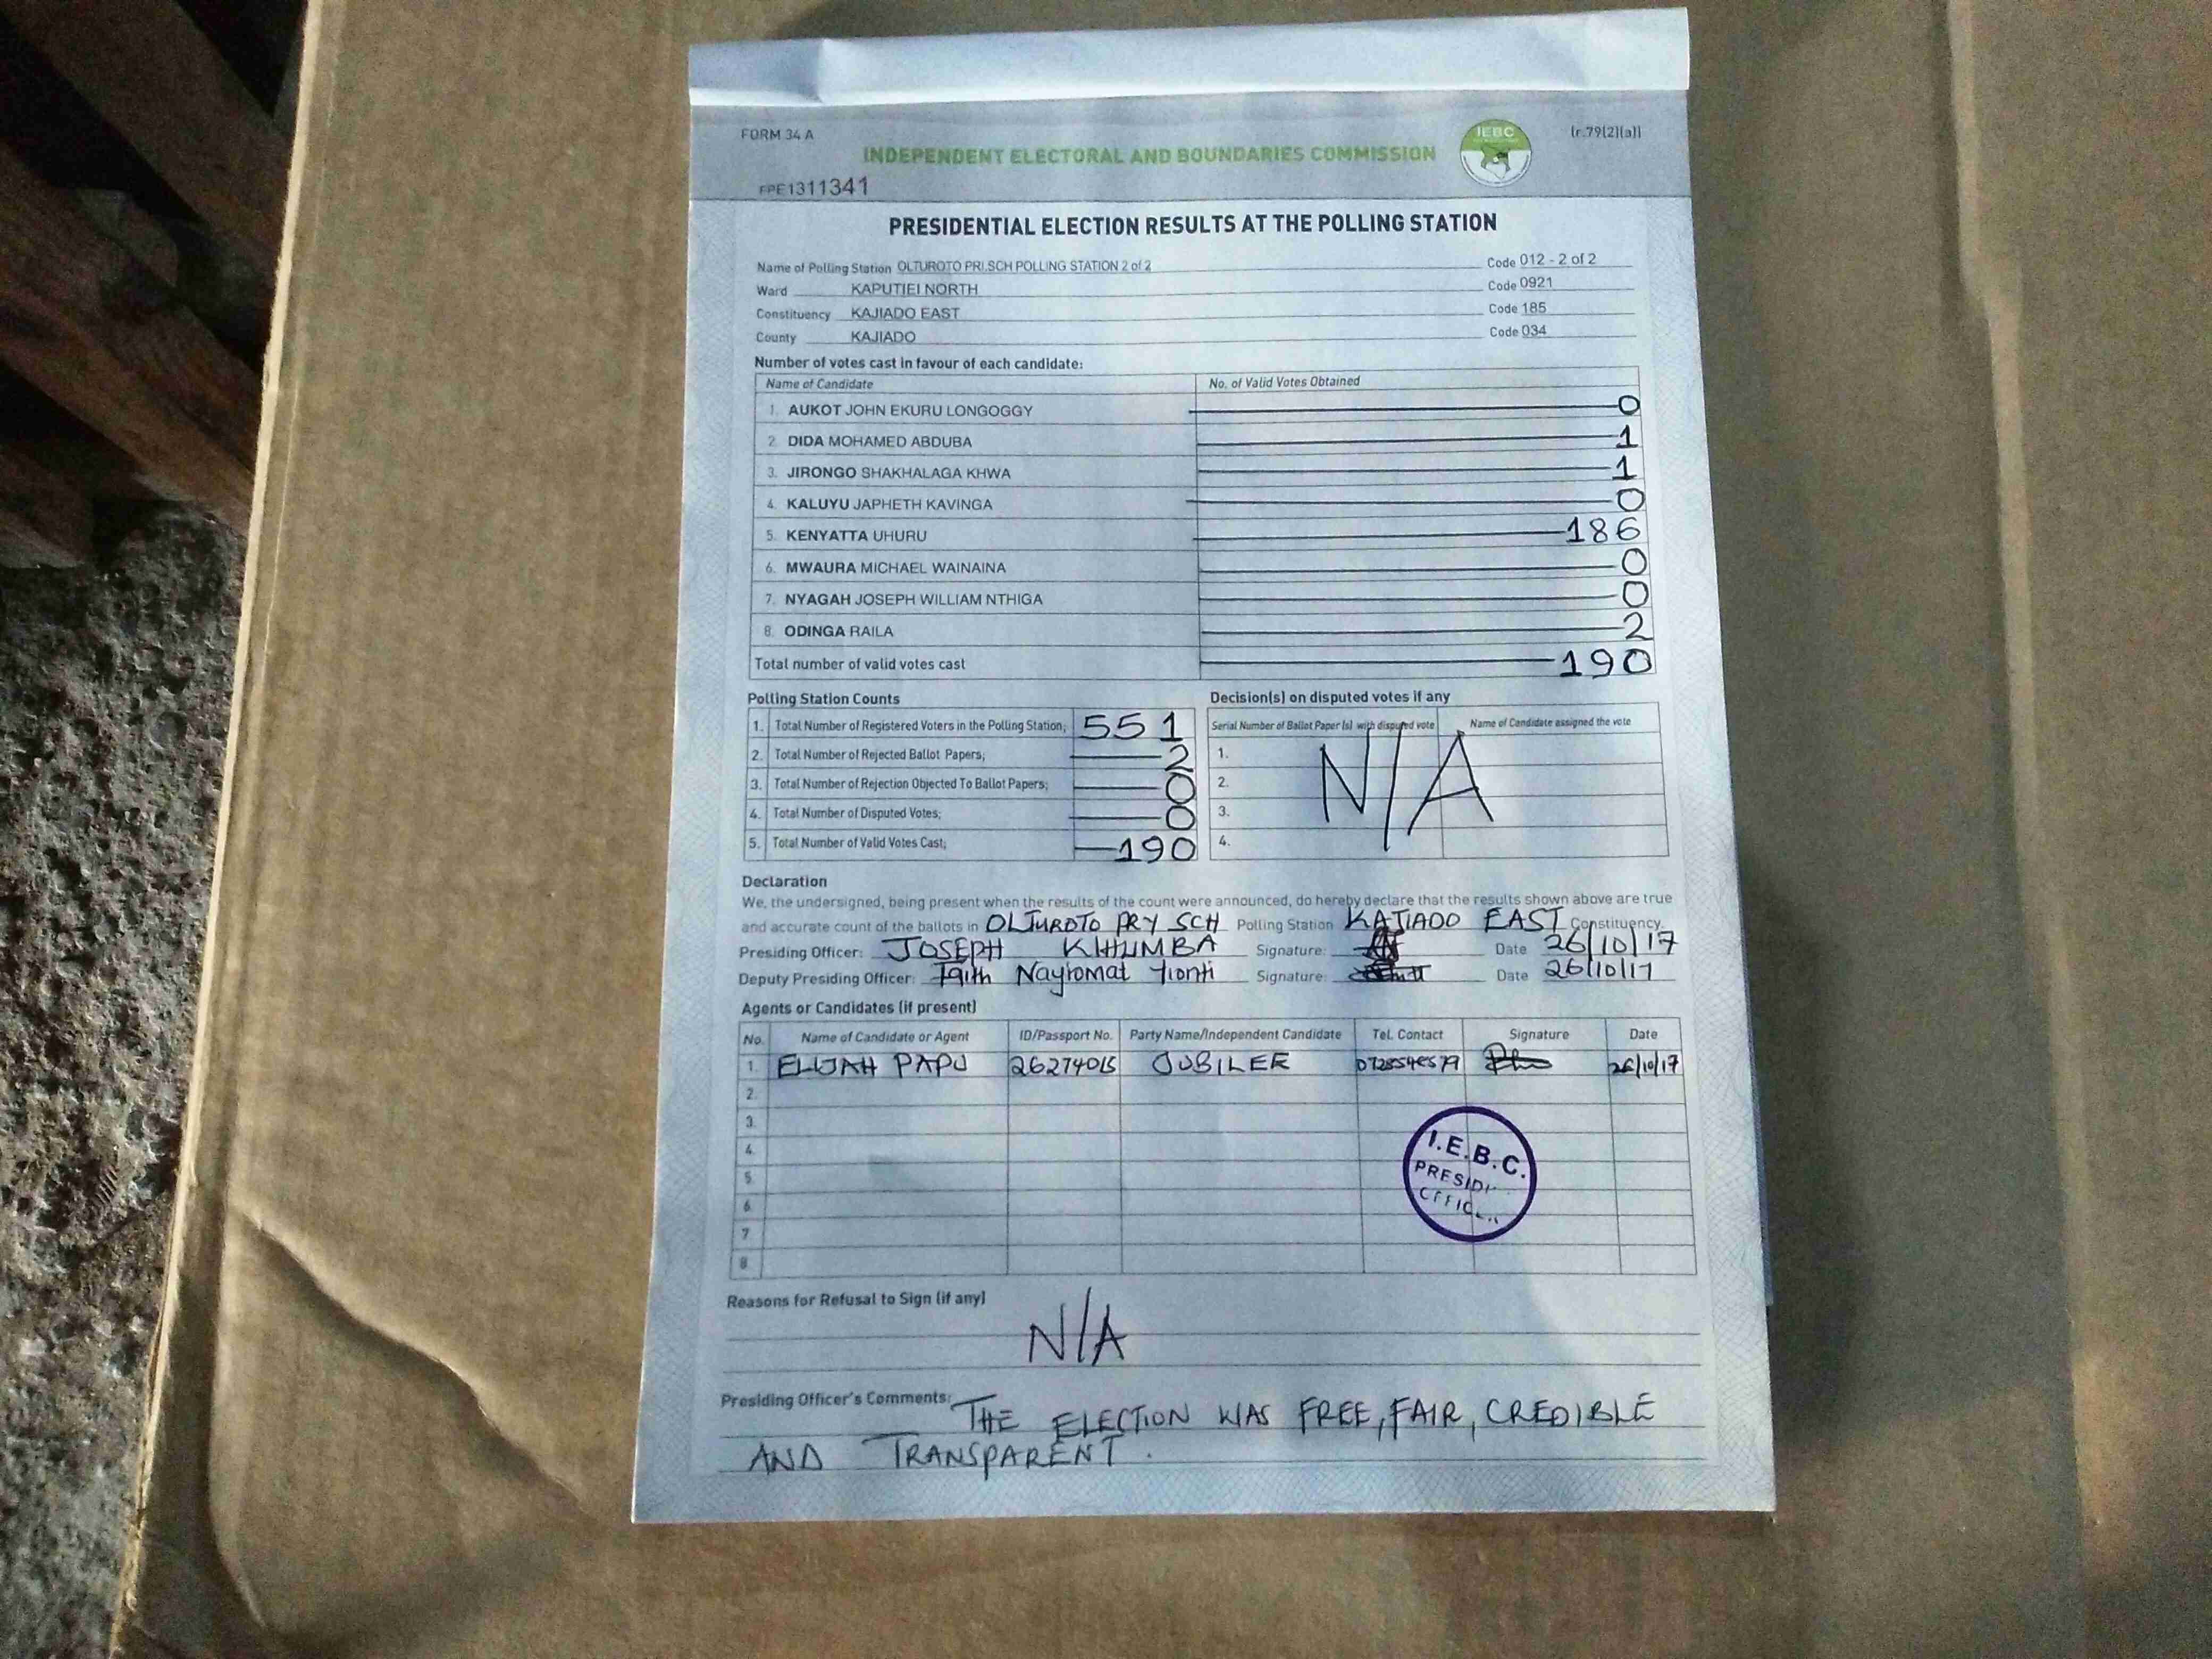 FORM 34 A
[r.79(2)(a)]
INDEPENDENT ELECTORAL AND BOUNDARIES COMMISSION
IEBC
FPE1311341
PRESIDENTIAL ELECTION RESULTS AT THE POLLING STATION
Name of Polling Station OLTUROTO PRI.SCH POLLING STATION 2 of 2 Code 012 - 2 of 2
Ward KAPUTIEI NORTH Code 0921
Constituency KAJIADO EAST Code 185
County KAJIADO Code 034
Number of votes cast in favour of each candidate:
Name of Candidate No. of Valid Votes Obtained
1. AUKOT JOHN EKURU LONGOGGY 0
2. DIDA MOHAMED ABDUBA 1
3. JIRONGO SHAKHALAGA KHWA 1
4. KALUYU JAPHETH KAVINGA 0
5. KENYATTA UHURU 186
6. MWAURA MICHAEL WAINAINA 0
7. NYAGAH JOSEPH WILLIAM NTHIGA 0
8. ODINGA RAILA 2
Total number of valid votes cast 190
Polling Station Counts
1. Total Number of Registered Voters in the Polling Station; 551
2. Total Number of Rejected Ballot Papers; 2
3. Total Number of Rejection Objected To Ballot Papers; 0
4. Total Number of Disputed Votes; 0
5. Total Number of Valid Votes Cast; 190
Decision(s) on disputed votes if any
Serial Number of Ballot Paper (s) with disputed vote Name of Candidate assigned the vote
1.
2.
3.
4.
N/A
Declaration
We, the undersigned, being present when the results of the count were announced, do hereby declare that the results shown above are true
and accurate count of the ballots in OLTUROTO PRY SCH Polling Station KAJIADO EAST Constituency.
Presiding Officer: JOSEPH KHUMBA Signature: Date 26/10/17
Deputy Presiding Officer: Signature: Date 26/10/17
Agents or Candidates (if present)
No. Name of Candidate or Agent ID/Passport No. Party Name/Independent Candidate Tel. Contact Signature Date
1. ELIJAH PAPU JUBILEE 26/10/17
2.
3.
4.
5.
6.
7
8
I.E.B.C.
Reasons for Refusal to Sign (if any)
N/A
Presiding Officer's Comments: THE ELECTION WAS FREE, FAIR, CREDIBLE
AND TRANSPARENT.